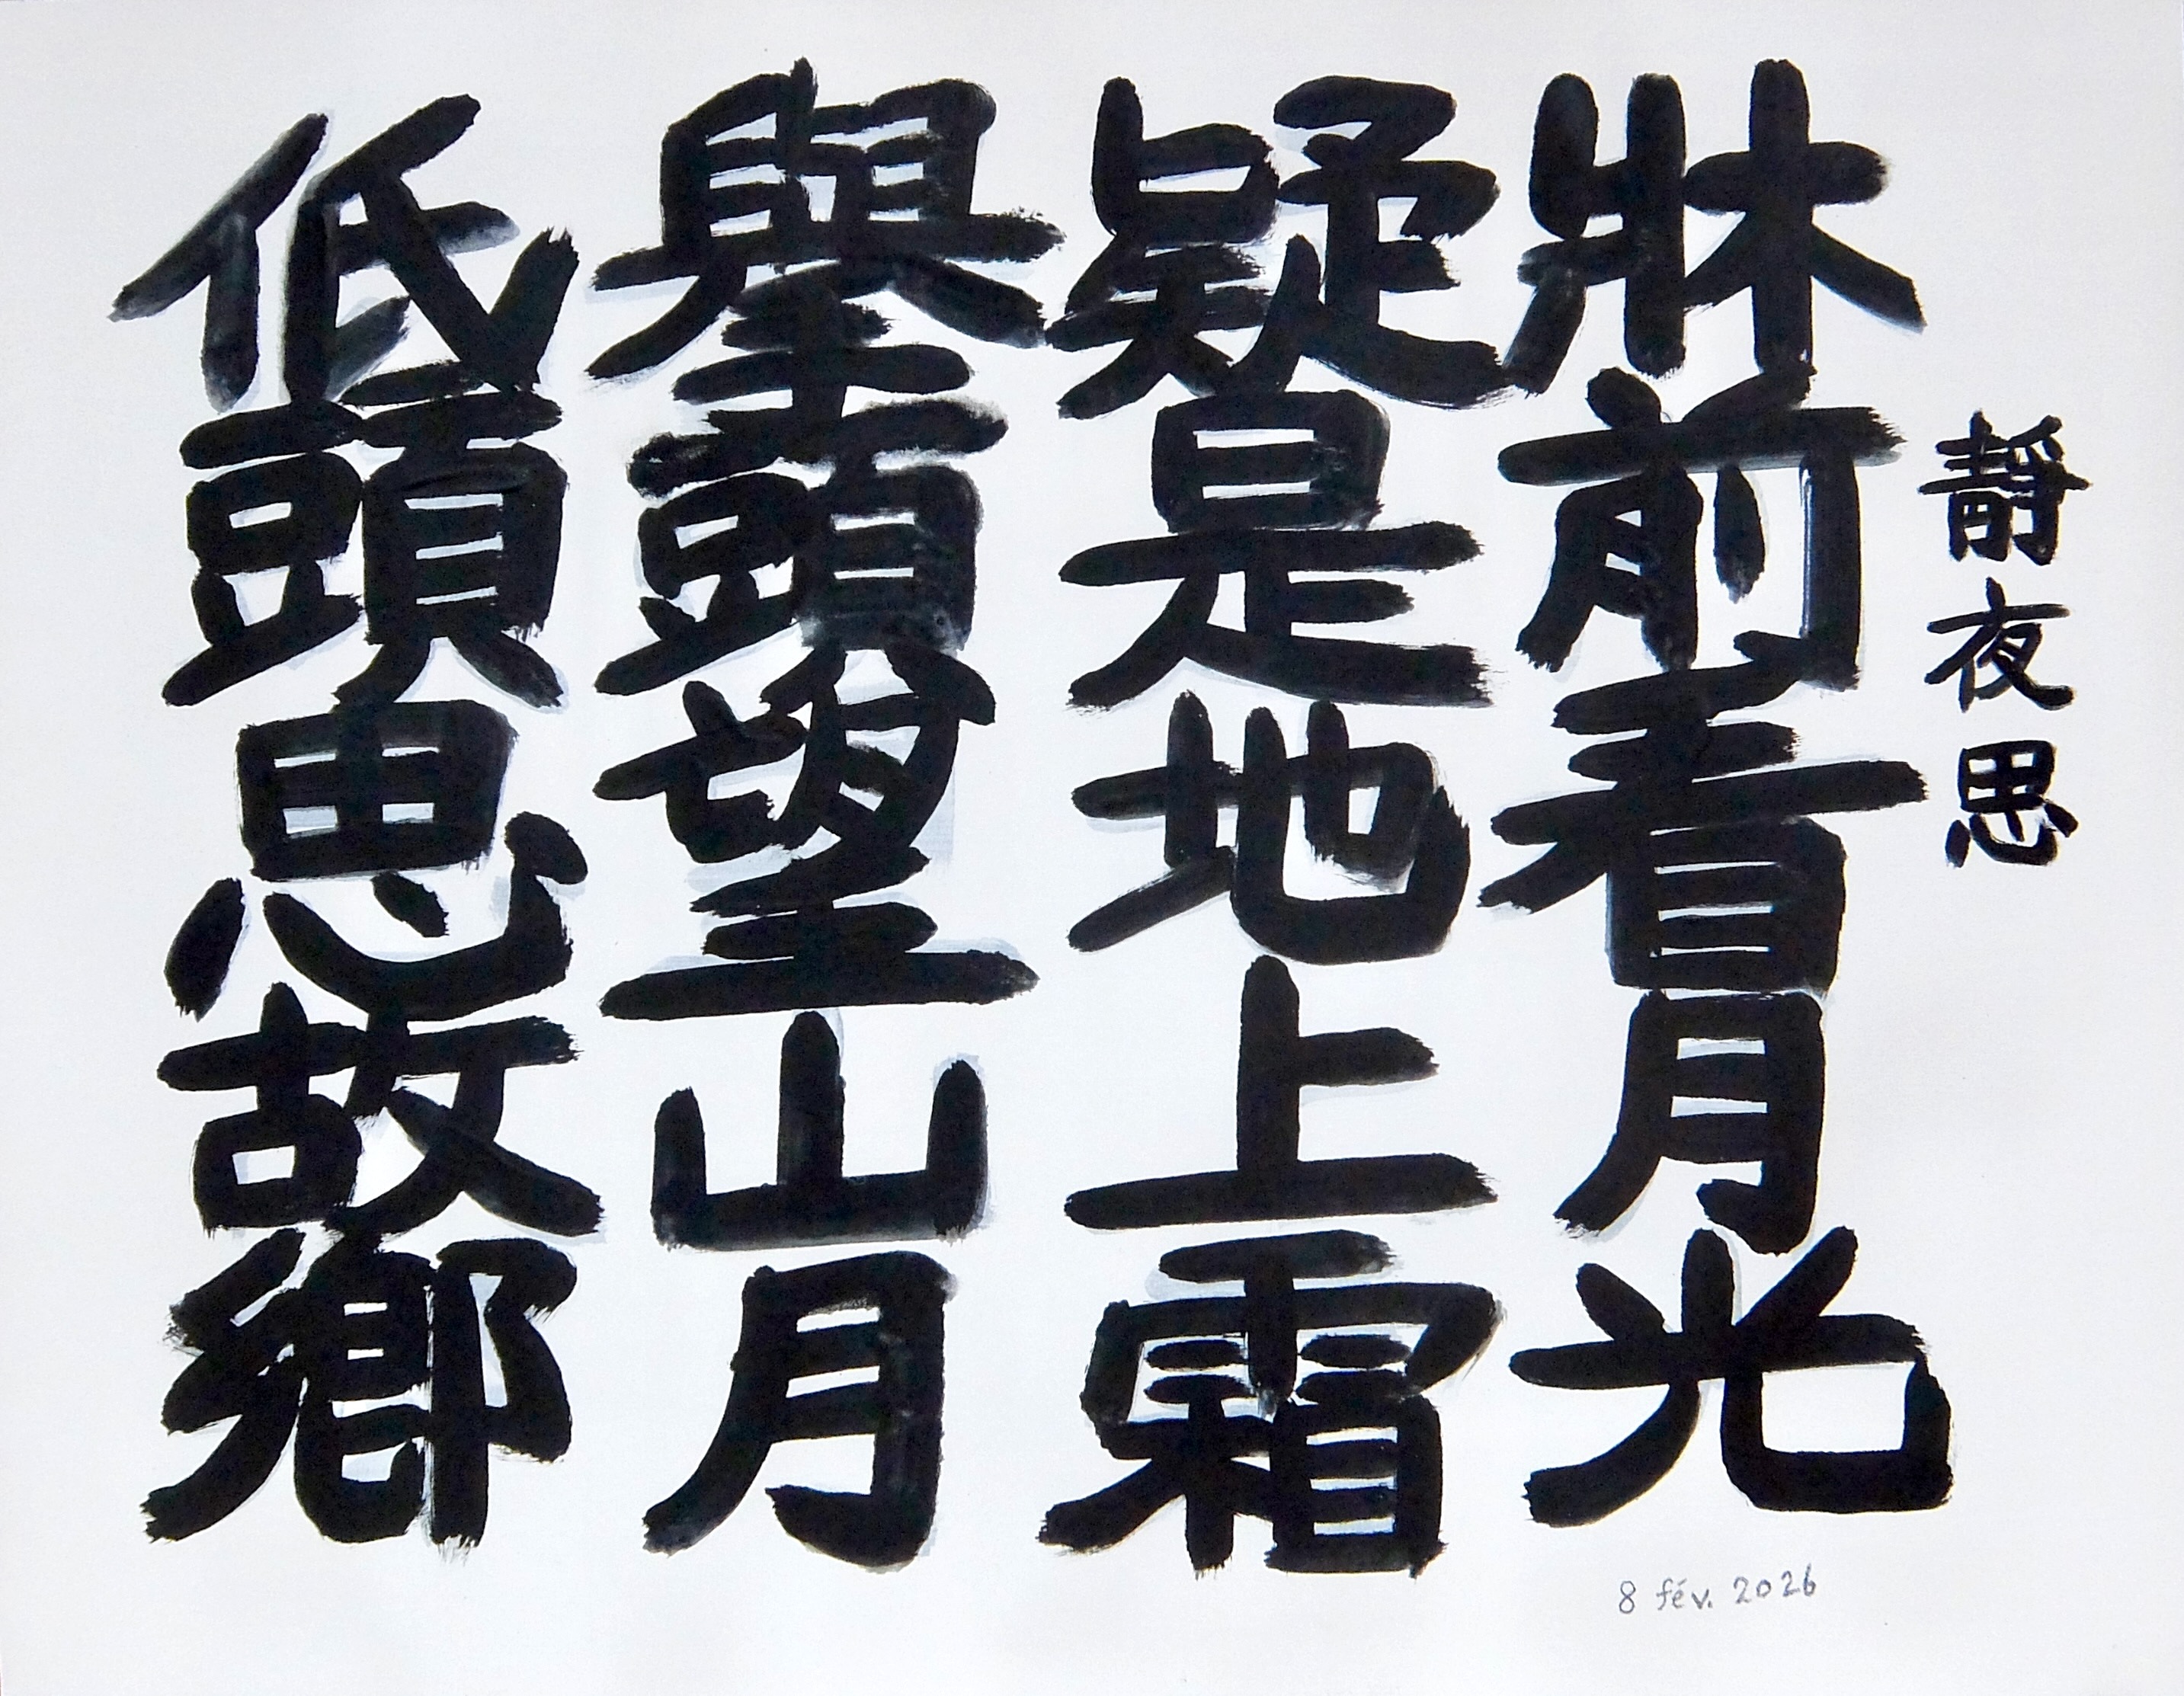 靜夜思
牀前看月光
疑是地上霜
舉頭望山月
低頭思故鄉
8 fév. 2026